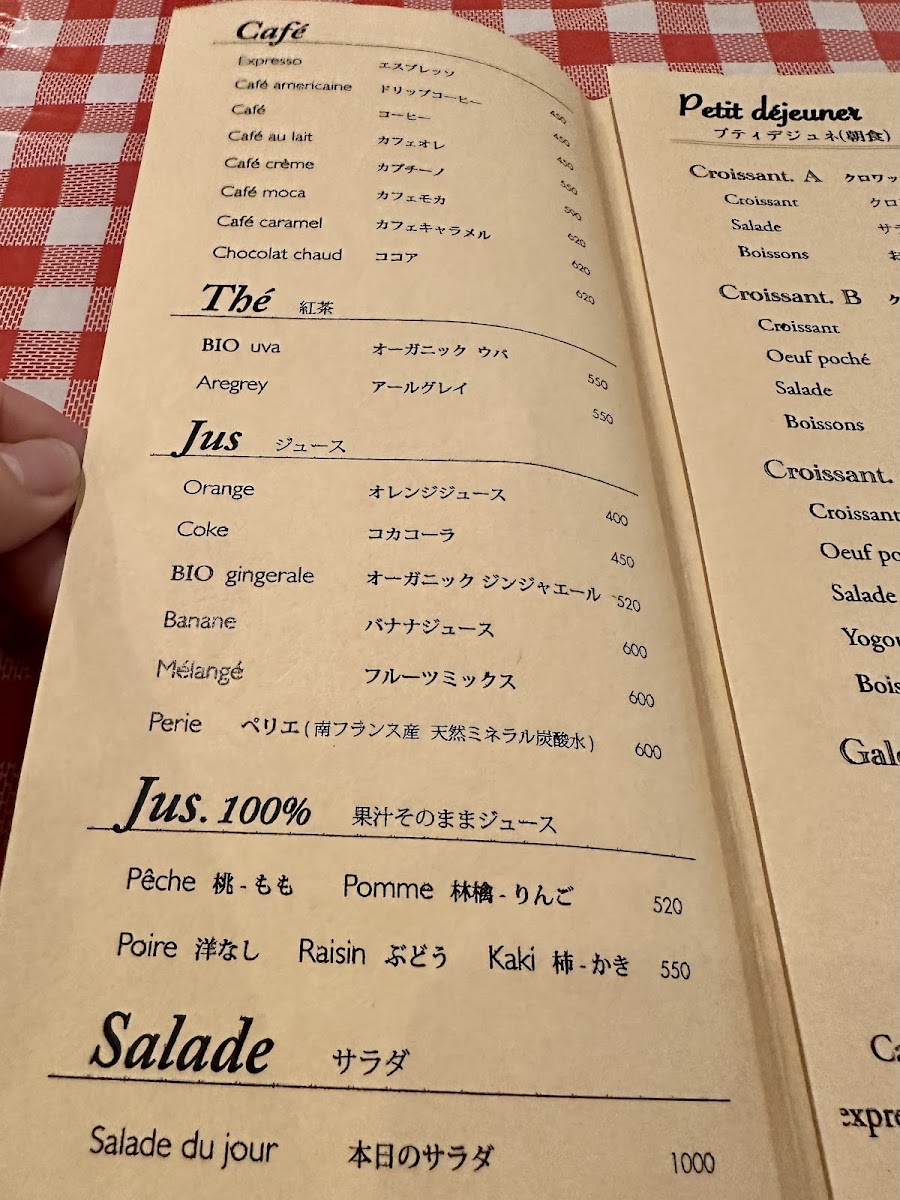 Café
Expresso エスプレッソ 450
Café americaine ドリップコーヒー 450
Café コーヒー 450
Café au lait カフェオレ 550
Café crème カプチーノ 590
Café moca カフェモカ 620
Café caramel カフェキャラメル 620
Chocolat chaud ココア 620
Thé 紅茶
BIO uva オーガニック ウバ 550
Aregrey アールグレイ 550
Jus ジュース
Orange オレンジジュース 400
Coke コカコーラ 450
BIO gingerale オーガニック ジンジャエール 520
Banane バナナジュース 600
Mélangé フルーツミックス 600
Perie ペリエ(南フランス産 天然ミネラル炭酸水) 600
Jus. 100% 果汁そのままジュース
Pêche 桃-もも Pomme 林檎-りんご 520
Poire 洋なし Raisin ぶどう Kaki 柿-かき 550
Salade サラダ
Salade du jour 本日のサラダ 1000
Petit déjeuner
プティデジュネ(朝食)
Croissant. A クロワッ
Croissant クロ
Salade サラ
Boissons お
Croissant. B ク
Croissant
Oeuf poché
Salade
Boissons
Croissant.
Croissant
Oeuf po
Salade
Yogou
Bois
Gale
Ca
expre